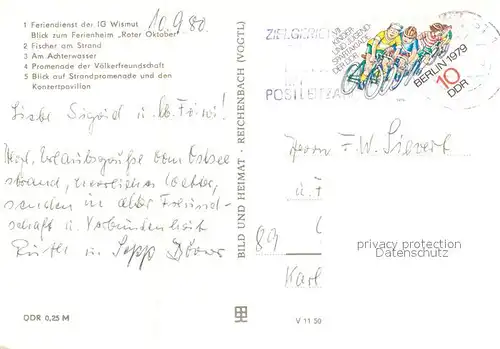 1 Feriendienst der IG Wismut
Blick zum Ferienheim „Roter Oktober"
2 Fischer am Strand
3 Am Achterwasser
4 Promenade der Völkerfreundschaft
5 Blick auf Strandpromenade und den
Konzertpavillon
10.9.80.
Liebe Sigrid u. lb. Friwi!
Herzl. Urlaubsgrüße vom Ostsee
strand, herrliches Wetter,
senden in alter Freund-
schaft u. Verbundenheit
Ruth u. Sepp
DDR 0,25 M
BILD UND HEIMAT · REICHENBACH (VOGTL)
V 11 50
VII.
KINDER
UND JUGEND-
SPARTAKIADE
DER DDR
BERLIN 1979
10
DDR
Herrn F. W. Sievert
89
Karl
privacy protection
Datenschutz